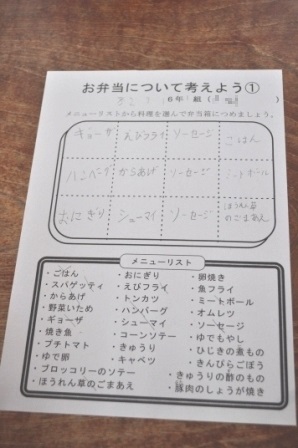 お弁当について考えよう①
6年 組(
)
メニューリストから料理を選んで弁当箱につめましょう。
ギョーザ えびフライ ソーセージ ごはん
ハンバーグ からあげ ソーセージ ミートボール
おにぎり シューマイ ソーセージ ほうれん草のごまあえ
メニューリスト
・ごはん ・おにぎり ・卵焼き
・スパゲッティ ・えびフライ ・魚フライ
・からあげ ・トンカツ ・ミートボール
・野菜いため ・ハンバーグ ・オムレツ
・ギョーザ ・シューマイ ・ソーセージ
・焼き魚 ・コーンソテー ・ゆでもやし
・プチトマト ・きゅうり ・ひじきの煮もの
・ゆで卵 ・キャベツ ・きんぴらごぼう
・ブロッコリーのソテー ・きゅうりの酢のもの
・ほうれん草のごまあえ ・豚肉のしょうが焼き